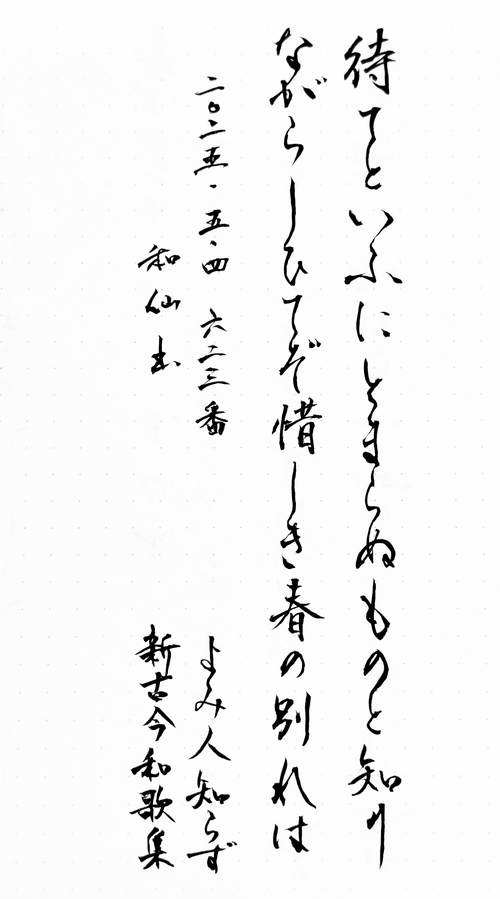 待てといふにとまらぬものと知り
ながらしひてぞ惜しき春の別れは
二〇二五・五・四 六二三番
よみ人知らず
和仙書
新古今和歌集